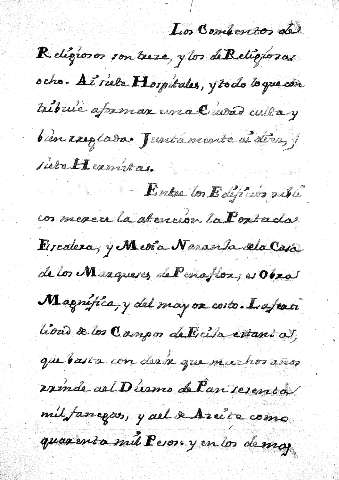 Los Combentos de
Religiosos son trece, y los de Religiosas
ocho. Ai siete Hospitales, y todo lo que con
tribuie a formar una Ciudad culta y
bien Juntamente ai
siete Hermitas.
Entre los Edificios publi
cos merece la atencion la Portada
Escalera, y Media Naranja de la Casa
de los Marqueses de Peñaflor, es Obra
Magnifica, y del mayor costo. La ferti
lidad de los Campos de Ecija es tanta,
que basta con decir que muchos años
rrinde del Diezmo de Pan sesenta
mil fanegas, y del de Aceite como
quarenta mil Pesos. y en los demas